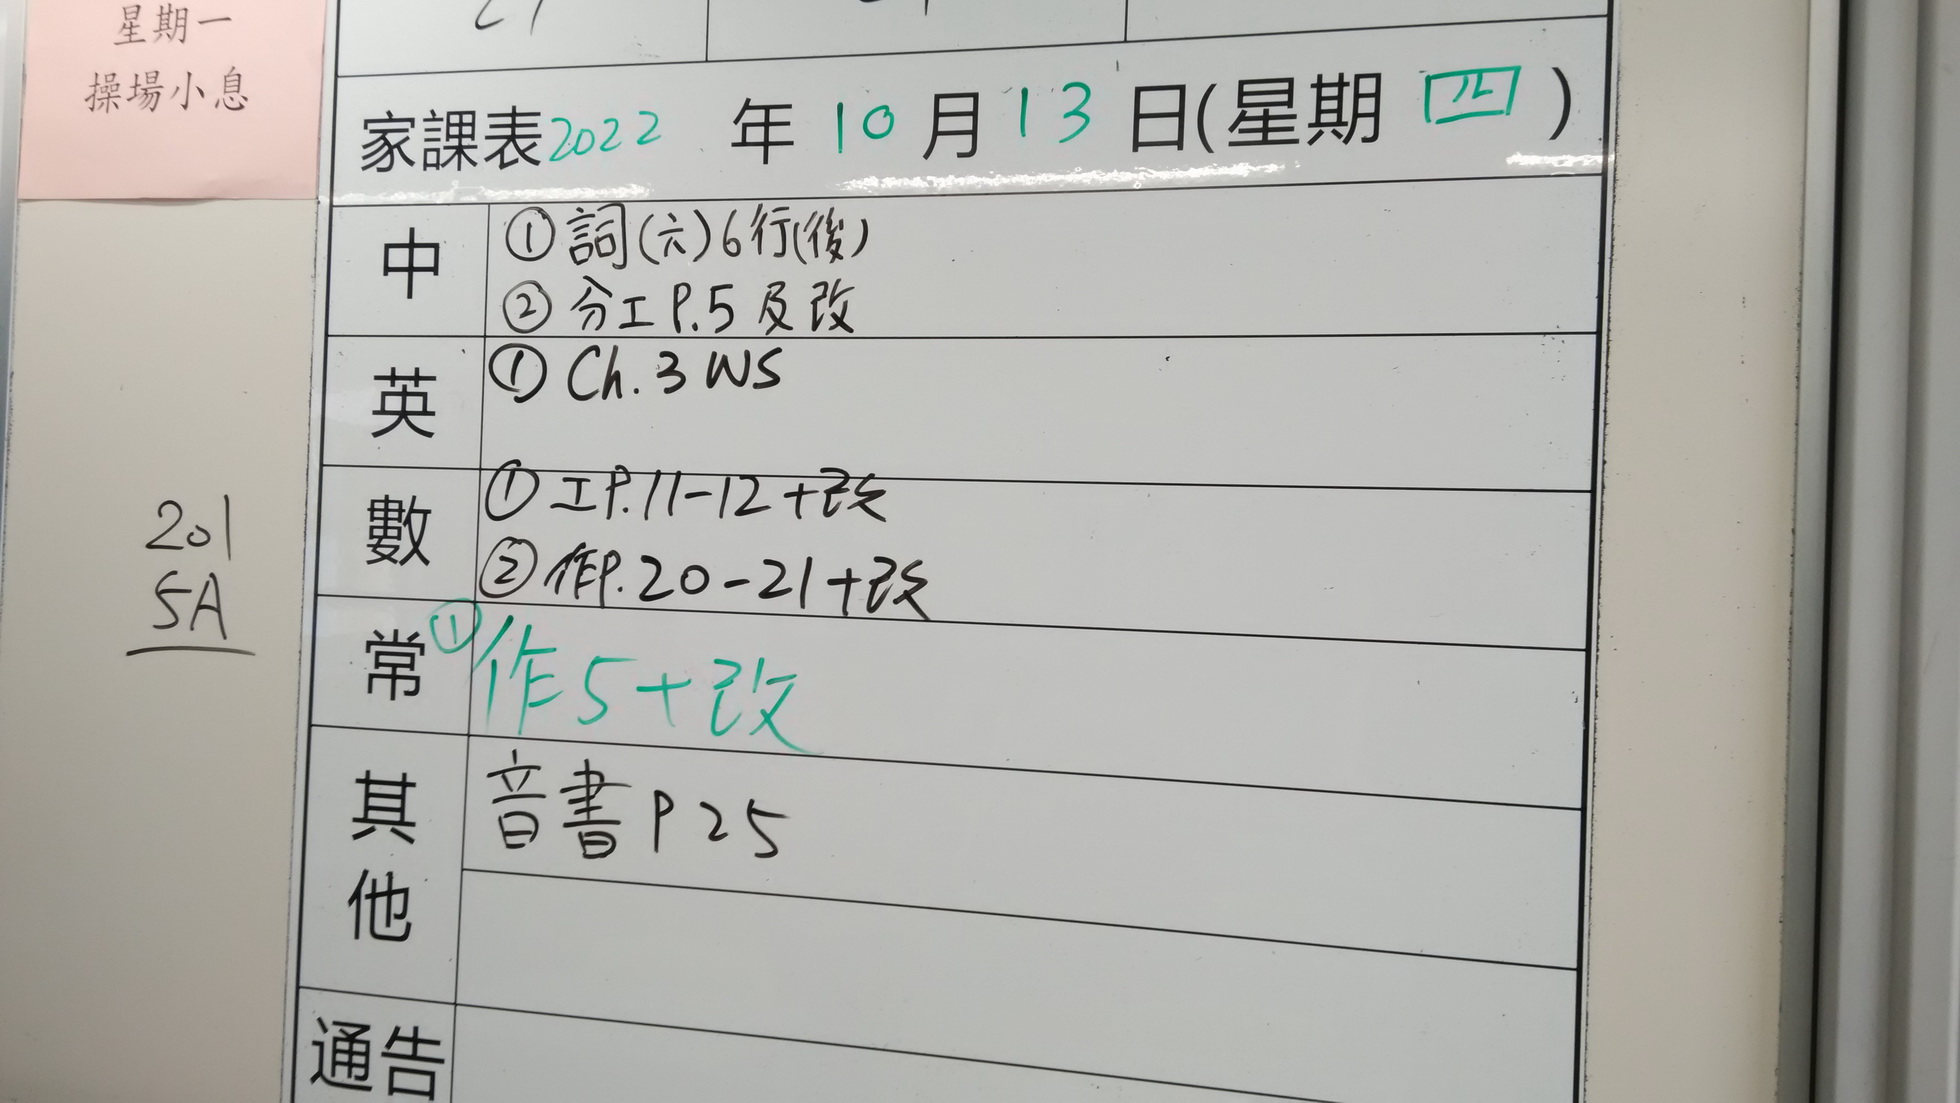 星期一
操場小息
家課表2022 年 10 月 13 日(星期 四 )
中
①詞(六)6行(後)
②分工P.5及改
英
①Ch.3 WS
數
①工P.11-12+改
②作P.20-21+改
常
①作5+改
其他
音書P25
通告
201
5A